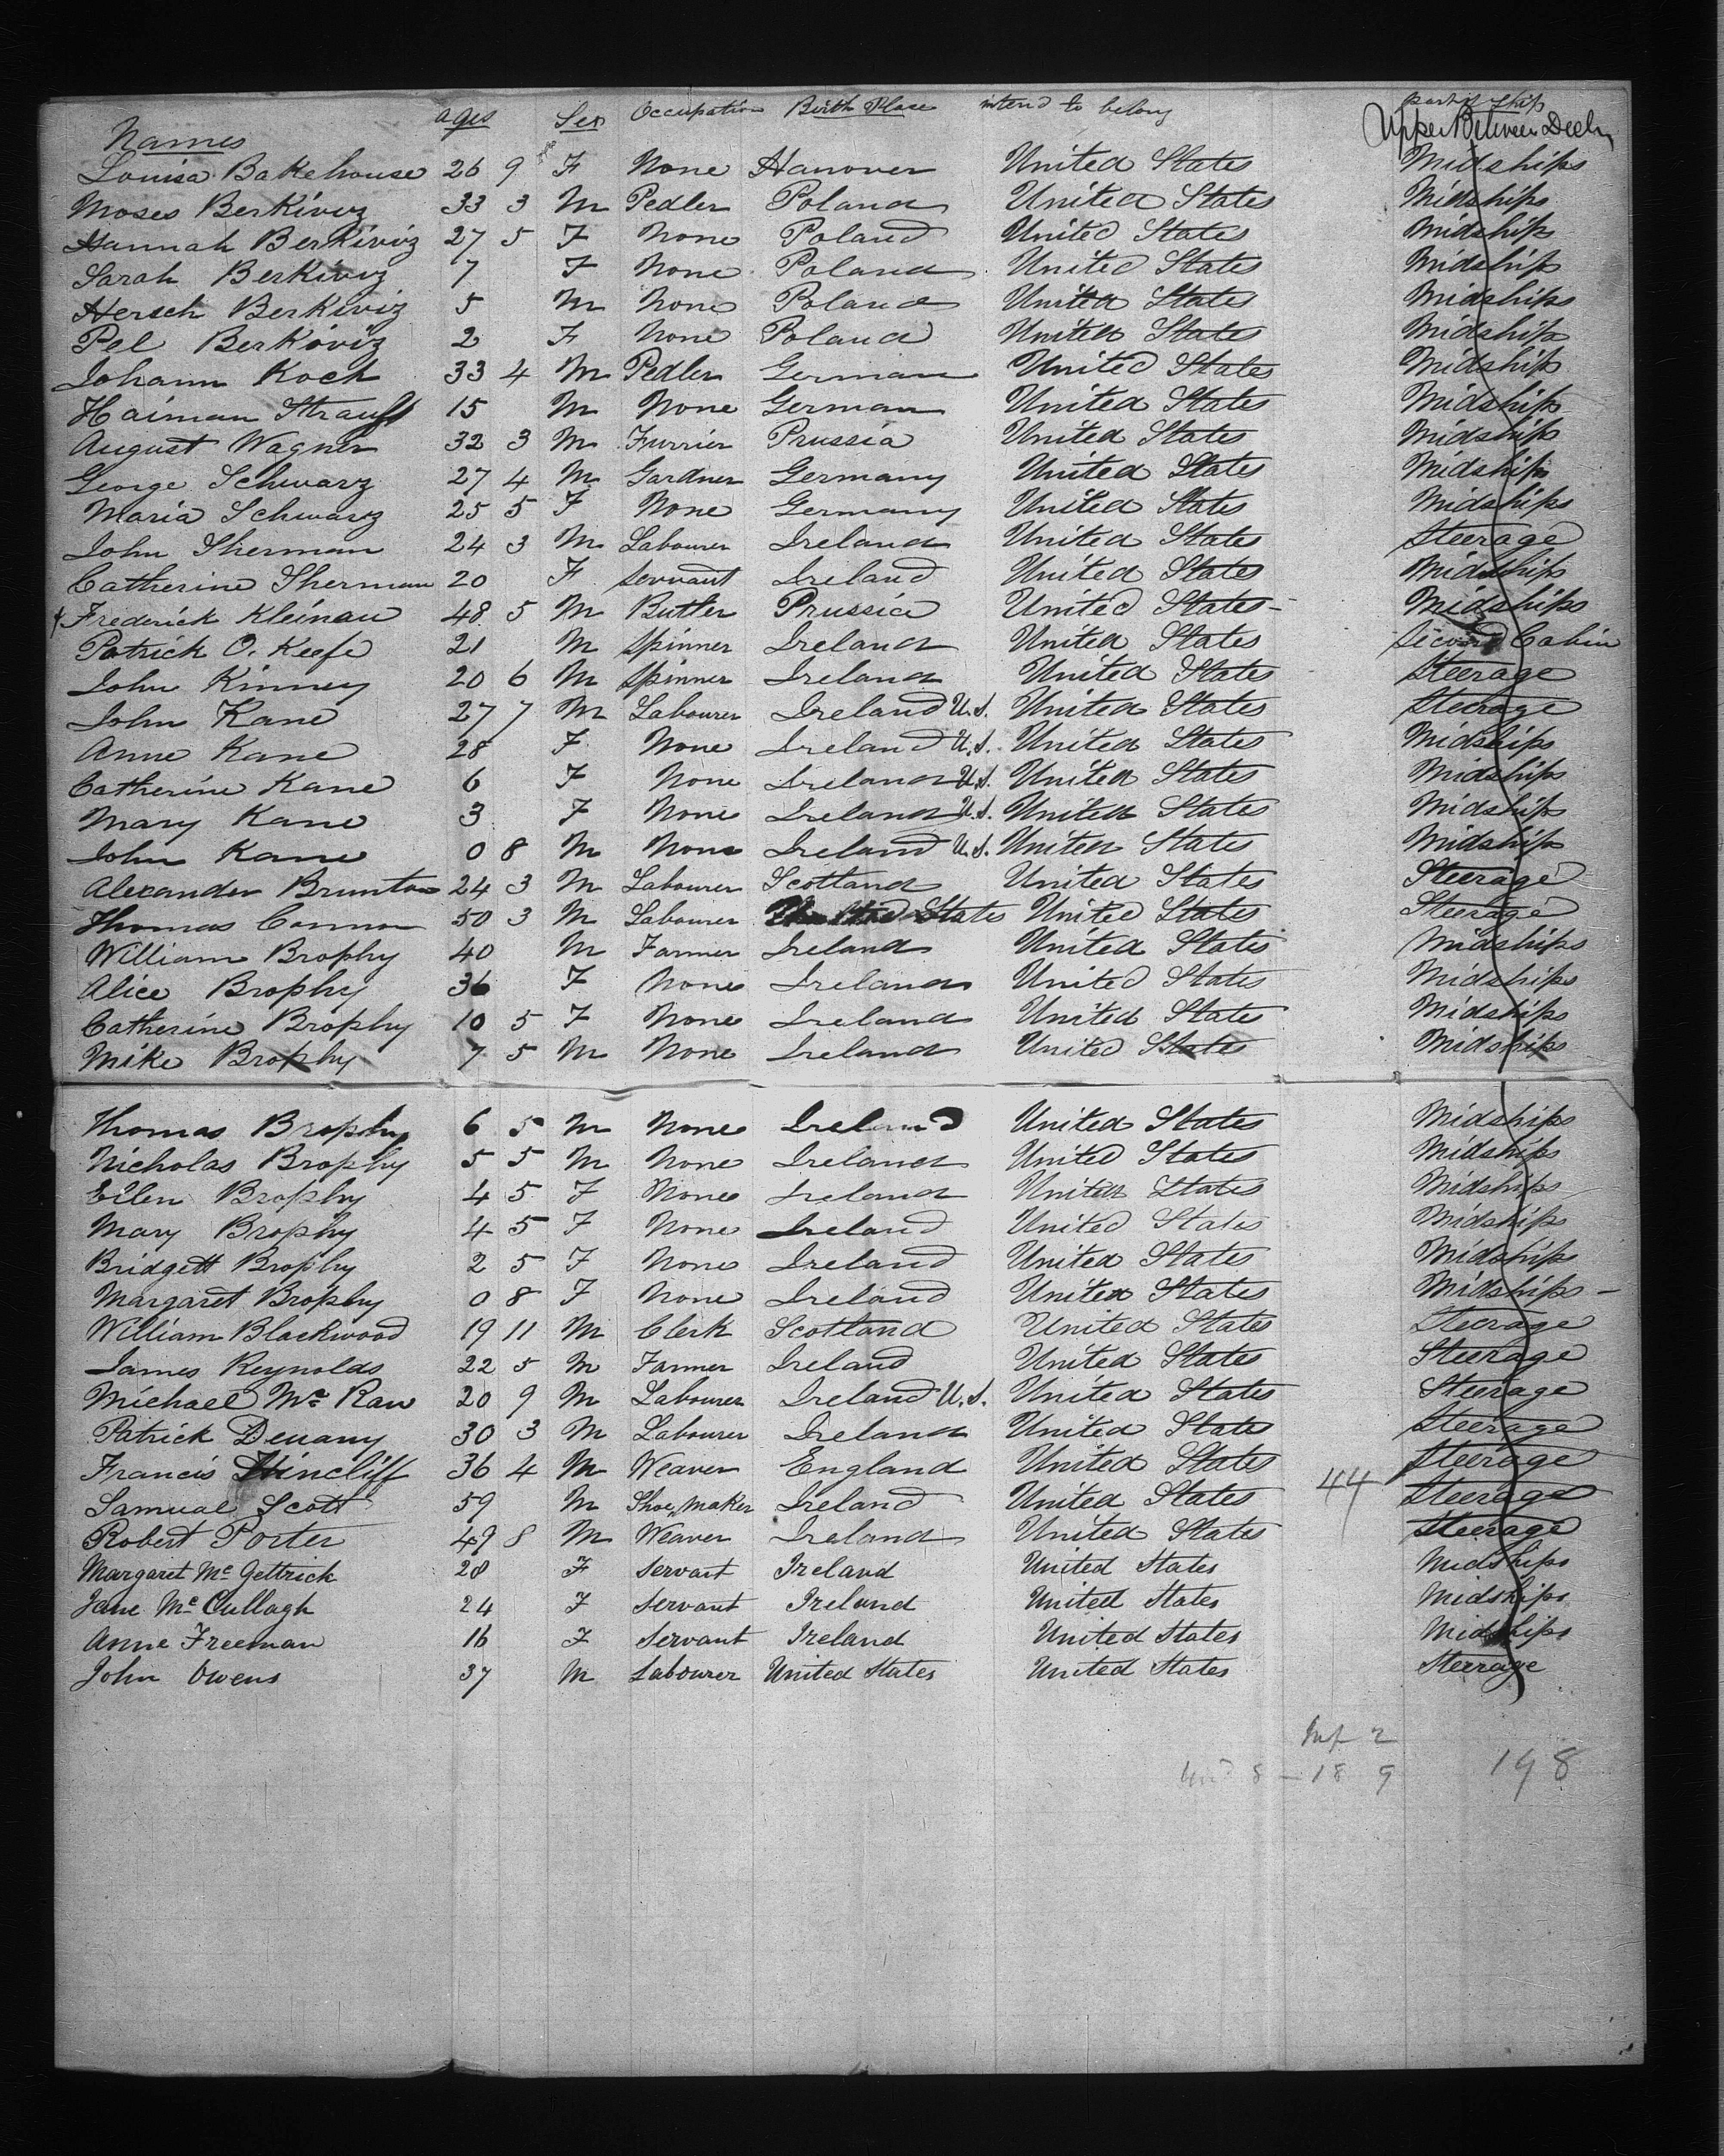 Names ages Sex Occupation Birth Place intend to belong part of ship
Upper Between Decks
Louisa Bakehouse 26 9 F None Hanover United States Midships
Moses Berkiviz 33 3 M Pedler Poland United States Midships
Hannah Berkiviz 27 5 F None Poland United States Midships
Sarah Berkiviz 7 F None Poland United States Midships
Hersch Berkiviz 5 M None Poland United States Midships
Pel Berkoviz 2 F None Poland United States Midships
Johann Koch 33 4 M Pedler German United States Midships
Haiman Strauss 15 M None German United States Midships
August Wagner 32 3 M Furrier Prussia United States Midships
George Schwarz 27 4 M Gardner Germany United States Midships
Maria Schwarz 25 5 F None Germany United States Midships
John Sherman 24 3 M Labourer Ireland United States Steerage
Catherine Sherman 20 F servant Ireland United States Midships
Frederick Kleinau 48 5 M Butler Prussia United States Midships
Patrick O. Keefe 21 M Spinner Ireland United States Second Cabin
John Kinney 20 6 M Spinner Ireland United States Steerage
John Kane 27 7 M Labourer Ireland U.S. United States Steerage
Anne Kane 28 F None Ireland U.S. United States Midships
Catherine Kane 6 F None Ireland U.S. United States Midships
Mary Kane 3 F None Ireland U.S. United States Midships
John Kane 0 8 M None Ireland U.S. United States Midships
Alexander Brunton 24 3 M Labourer Scotland United States Steerage
Thomas Connor 50 3 M Labourer United States United States Steerage
William Brophy 40 M Farmer Ireland United States Midships
Alice Brophy 36 F None Ireland United States Midships
Catherine Brophy 10 5 F None Ireland United States Midships
Mike Brophy 7 5 M None Ireland United States Midships
Thomas Brophy 6 5 M None Ireland United States Midships
Nicholas Brophy 5 5 M None Ireland United States Midships
Ellen Brophy 4 5 F None Ireland United States Midships
Mary Brophy 4 5 F None Ireland United States Midships
Bridgett Brophy 2 5 F None Ireland United States Midships
Margaret Brophy 0 8 F None Ireland United States Midships -
William Blackwood 19 11 M Clerk Scotland United States Steerage
James Reynolds 22 5 M Farmer Ireland United States Steerage
Michael Mc Raw 20 9 M Labourer Ireland U.S. United States Steerage
Patrick Denany 30 3 M Labourer Ireland United States Steerage
Francis Hincliff 36 4 M Weaver England United States Steerage
Samual Scott 59 M Shoe maker Ireland United States 44 Steerage
Robert Porter 49 8 M Weaver Ireland United States Steerage
Margaret Mc Gettrick 28 F Servant Ireland United States Midships
Jane Mc Cullagh 24 F Servant Ireland United States Midships
Anne Freeman 16 F Servant Ireland United States Midships
John Owens 37 M Labourer United States United States Steerage
Inf 2
8 - 18 9 198